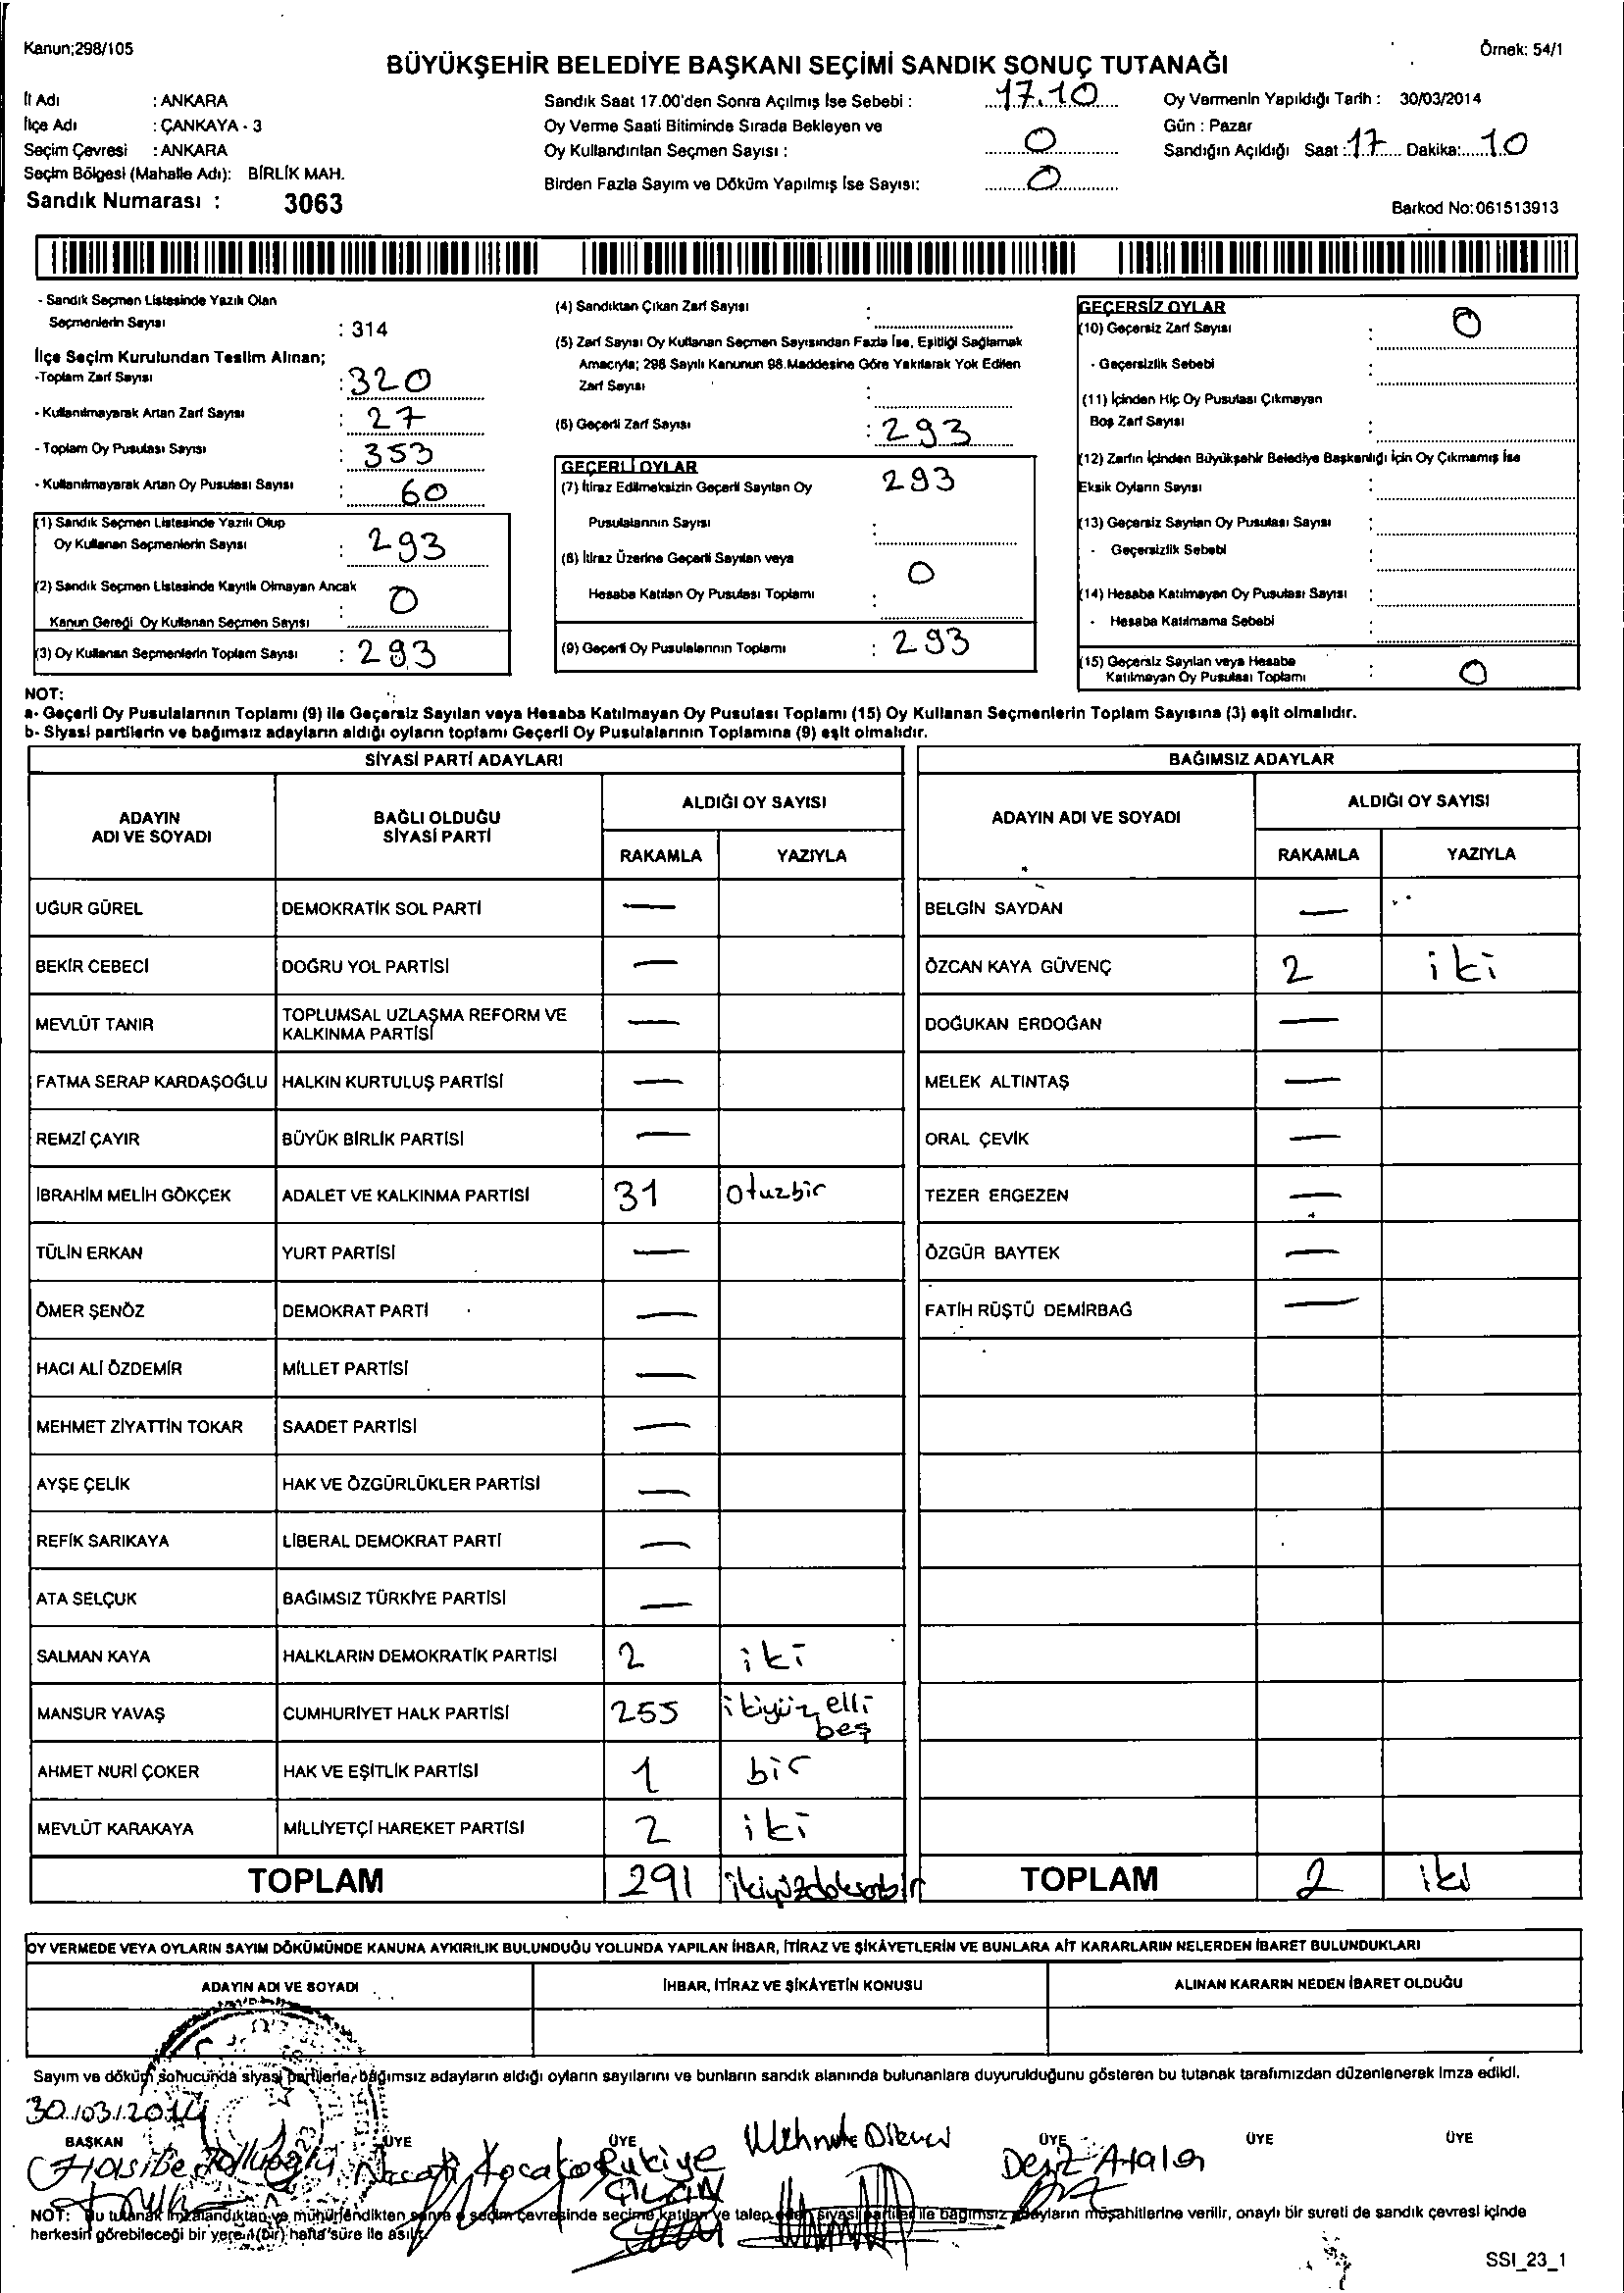 Kanun;298/105
Örnek: 54/1
BÜYÜKŞEHİR BELEDİYE BAŞKANI SEÇİMİ SANDIK SONUÇ TUTANAĞI
İl Adı : ANKARA
İlçe Adı : ÇANKAYA - 3
Seçim Çevresi : ANKARA
Seçim Bölgesi (Mahalle Adı): BİRLİK MAH.
Sandık Numarası : 3063
Sandık Saat 17.00'den Sonra Açılmış İse Sebebi : 17.10
Oy Verme Saati Bitiminde Sırada Bekleyen ve
Oy Kullandırılan Seçmen Sayısı : 0
Birden Fazla Sayım ve Döküm Yapılmış İse Sayısı: 0
Oy Vermenin Yapıldığı Tarih : 30/03/2014
Gün : Pazar
Sandığın Açıldığı Saat : 17 Dakika: 10
Barkod No:061513913
- Sandık Seçmen Listesinde Yazılı Olan
Seçmenlerin Sayısı : 314
İlçe Seçim Kurulundan Teslim Alınan;
-Toplam Zarf Sayısı : 320
- Kullanılmayarak Artan Zarf Sayısı : 27
- Toplam Oy Pusulası Sayısı : 353
- Kullanılmayarak Artan Oy Pusulası Sayısı : 60
(1) Sandık Seçmen Listesinde Yazılı Olup
Oy Kullanan Seçmenlerin Sayısı : 293
(2) Sandık Seçmen Listesinde Kayıtlı Olmayan Ancak
Kanun Gereği Oy Kullanan Seçmen Sayısı : 0
(3) Oy Kullanan Seçmenlerin Toplam Sayısı : 293
(4) Sandıktan Çıkan Zarf Sayısı :
(5) Zarf Sayısı Oy Kullanan Seçmen Sayısından Fazla İse, Eşitliği Sağlamak
Amacıyla; 298 Sayılı Kanunun 98.Maddesine Göre Yakılarak Yok Edilen
Zarf Sayısı :
(6) Geçerli Zarf Sayısı : 293
GEÇERLİ OYLAR
(7) İtiraz Edilmeksizin Geçerli Sayılan Oy 293
Pusulalarının Sayısı :
(8) İtiraz Üzerine Geçerli Sayılan veya 0
Hesaba Katılan Oy Pusulası Toplamı :
(9) Geçerli Oy Pusulalarının Toplamı : 293
GEÇERSİZ OYLAR
(10) Geçersiz Zarf Sayısı : 0
- Geçersizlik Sebebi :
(11) İçinden Hiç Oy Pusulası Çıkmayan
Boş Zarf Sayısı :
(12) Zarfın İçinden Büyükşehir Belediye Başkanlığı İçin Oy Çıkmamış İse
Eksik Oyların Sayısı :
(13) Geçersiz Sayılan Oy Pusulası Sayısı :
- Geçersizlik Sebebi :
(14) Hesaba Katılmayan Oy Pusulası Sayısı :
- Hesaba Katılmama Sebebi :
(15) Geçersiz Sayılan veya Hesaba
Katılmayan Oy Pusulası Toplamı : 0
NOT:
a- Geçerli Oy Pusulalarının Toplamı (9) ile Geçersiz Sayılan veya Hesaba Katılmayan Oy Pusulası Toplamı (15) Oy Kullanan Seçmenlerin Toplam Sayısına (3) eşit olmalıdır.
b- Siyasi partilerin ve bağımsız adayların aldığı oyların toplamı Geçerli Oy Pusulalarının Toplamına (9) eşit olmalıdır.
SİYASİ PARTİ ADAYLARI
ADAYIN ADI VE SOYADI
BAĞLI OLDUĞU SİYASİ PARTİ
ALDIĞI OY SAYISI
RAKAMLA YAZIYLA
UĞUR GÜREL DEMOKRATİK SOL PARTİ —
BEKİR CEBECİ DOĞRU YOL PARTİSİ —
MEVLÜT TANIR TOPLUMSAL UZLAŞMA REFORM VE KALKINMA PARTİSİ —
FATMA SERAP KARDAŞOĞLU HALKIN KURTULUŞ PARTİSİ —
REMZİ ÇAYIR BÜYÜK BİRLİK PARTİSİ —
İBRAHİM MELİH GÖKÇEK ADALET VE KALKINMA PARTİSİ 31 otuzbir
TÜLİN ERKAN YURT PARTİSİ —
ÖMER ŞENÖZ DEMOKRAT PARTİ —
HACI ALİ ÖZDEMİR MİLLET PARTİSİ —
MEHMET ZİYATTİN TOKAR SAADET PARTİSİ —
AYŞE ÇELİK HAK VE ÖZGÜRLÜKLER PARTİSİ —
REFİK SARIKAYA LİBERAL DEMOKRAT PARTİ —
ATA SELÇUK BAĞIMSIZ TÜRKİYE PARTİSİ —
SALMAN KAYA HALKLARIN DEMOKRATİK PARTİSİ 2 iki
MANSUR YAVAŞ CUMHURİYET HALK PARTİSİ 255 ikiyüz elli beş
AHMET NURİ ÇOKER HAK VE EŞİTLİK PARTİSİ 1 bir
MEVLÜT KARAKAYA MİLLİYETÇİ HAREKET PARTİSİ 2 iki
TOPLAM 291 ikiyüzdoksabir
BAĞIMSIZ ADAYLAR
ADAYIN ADI VE SOYADI
ALDIĞI OY SAYISI
RAKAMLA YAZIYLA
BELGİN SAYDAN —
ÖZCAN KAYA GÜVENÇ 2 iki
DOĞUKAN ERDOĞAN —
MELEK ALTINTAŞ —
ORAL ÇEVİK —
TEZER ERGEZEN —
ÖZGÜR BAYTEK —
FATİH RÜŞTÜ DEMİRBAĞ —
TOPLAM 2 iki
OY VERMEDE VEYA OYLARIN SAYIM DÖKÜMÜNDE KANUNA AYKIRILIK BULUNDUĞU YOLUNDA YAPILAN İHBAR, İTİRAZ VE ŞİKÂYETLERİN VE BUNLARA AİT KARARLARIN NELERDEN İBARET BULUNDUKLARI
ADAYIN ADI VE SOYADI
İHBAR, İTİRAZ VE ŞİKÂYETİN KONUSU
ALINAN KARARIN NEDEN İBARET OLDUĞU
Sayım ve döküm sonucunda siyasi partilerle, bağımsız adayların aldığı oyların sayılarını ve bunların sandık alanında bulunanlara duyurulduğunu gösteren bu tutanak tarafımızdan düzenlenerek imza edildi.
30/03/2014
BAŞKAN ÜYE ÜYE ÜYE ÜYE ÜYE
Hasibe
Rukiye
Deniz Atalar
NOT: Bu tutanak imzalandıktan ve mühürlendikten sonra o seçim çevresinde seçime katılan ve talep eden siyasi partiler ile bağımsız adayların müşahitlerine verilir, onaylı bir sureti de sandık çevresi içinde
herkesin görebileceği bir yere 1 (bir) hafta süre ile asılır.
SSI_23_1